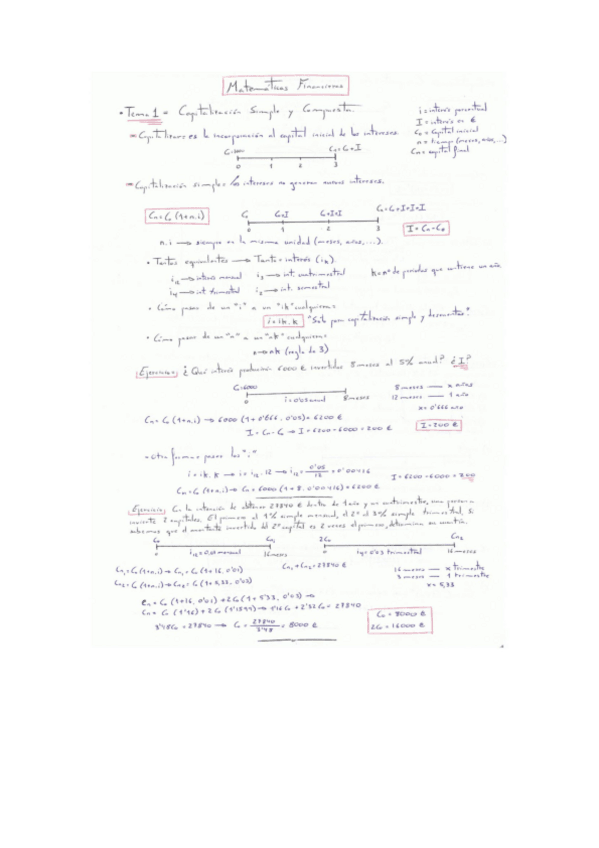 Matemáticas Financieras
• Tema 1 = Capitalización Simple y Compuesta.
i = interés porcentual
I = interés en €
C₀ = Capital inicial
n = tiempo (meses, años,...)
Cn = capital final
⇒ Capitalizar = es la incorporación al capital inicial de los intereses.
Cn = C₀ + I
0 1 2 3
⇒ Capitalización simple = los intereses no generan nuevos intereses.
Cn = C₀ (1+n.i)
C₀ C₀+I C₀+I+I Cn = C₀+I+I+I
0 1 2 3
I = Cn - C₀
n.i → siempre en la misma unidad (meses, años,...).
• Tantos equivalentes → Tanto = interés (iₖ)
i₁₂ → interés mensual i₃ → int. cuatrimestral
k = nº de periodos que contiene un año
i₄ → int. trimestral i₂ → int. semestral
• Cómo pasar de un "i" a un "ik" cualquiera =
i = iₖ . k "Solo para capitalización simple y descuentos"
• Cómo pasar de un "n" a un "nk" cualquiera =
n → nk (regla de 3)
Ejercicio = ¿Qué interés producirán 6000 € invertidos 8 meses al 5% anual? ¿I?
C₀ = 6000
0 i = 0'05 anual 8 meses
8 meses — x años
12 meses — 1 año
x = 0'666 año
Cn = C₀ (1+n.i) → 6000 (1 + 0'666 . 0'05) = 6200 €
I = Cn - C₀ → I = 6200 - 6000 = 200 €
I = 200 €
• Otra forma = pasar los "i"
i = iₖ . k → i = i₁₂ . 12 → i₁₂ = 0'05/12 = 0'00416
I = 6200 - 6000 = 200
Cn = C₀ (1+n.i) → Cn = 6000 (1 + 8 . 0'00416) = 6200 €
Ejercicio = Con la intención de obtener 27840 € dentro de 1 año y un cuatrimestre, una persona
invierte 2 capitales. El primero al 1% simple mensual, el 2º al 3% simple trimestral. Si
sabemos que el montante invertido del 2º capital es 2 veces el primero, determina su cuantía.
C₀ Cn₁
0 i₁₂ = 0,01 mensual 16 meses
2C₀ Cn₂
0 i₄ = 0'03 trimestral 16 meses
Cn₁ = C₀ (1+n.i) → Cn₁ = C₀ (1 + 16 . 0'01)
Cn₁ + Cn₂ = 27840 €
16 meses — x trimestre
Cn₂ = C₀ (1+n.i) → Cn₂ = C₀ (1 + 5,33 . 0'03)
3 meses — 1 trimestre
x = 5,33
Cn = C₀ (1 + 16 . 0'01) + 2C₀ (1 + 5'33 . 0'03) →
Cn = C₀ (1'16) + 2C₀ (1'1599) → 1'16C₀ + 2'32C₀ = 27840
3'48C₀ = 27840 → C₀ = 27840/3'48 = 8000 €
C₀ = 8000 €
2C₀ = 16000 €